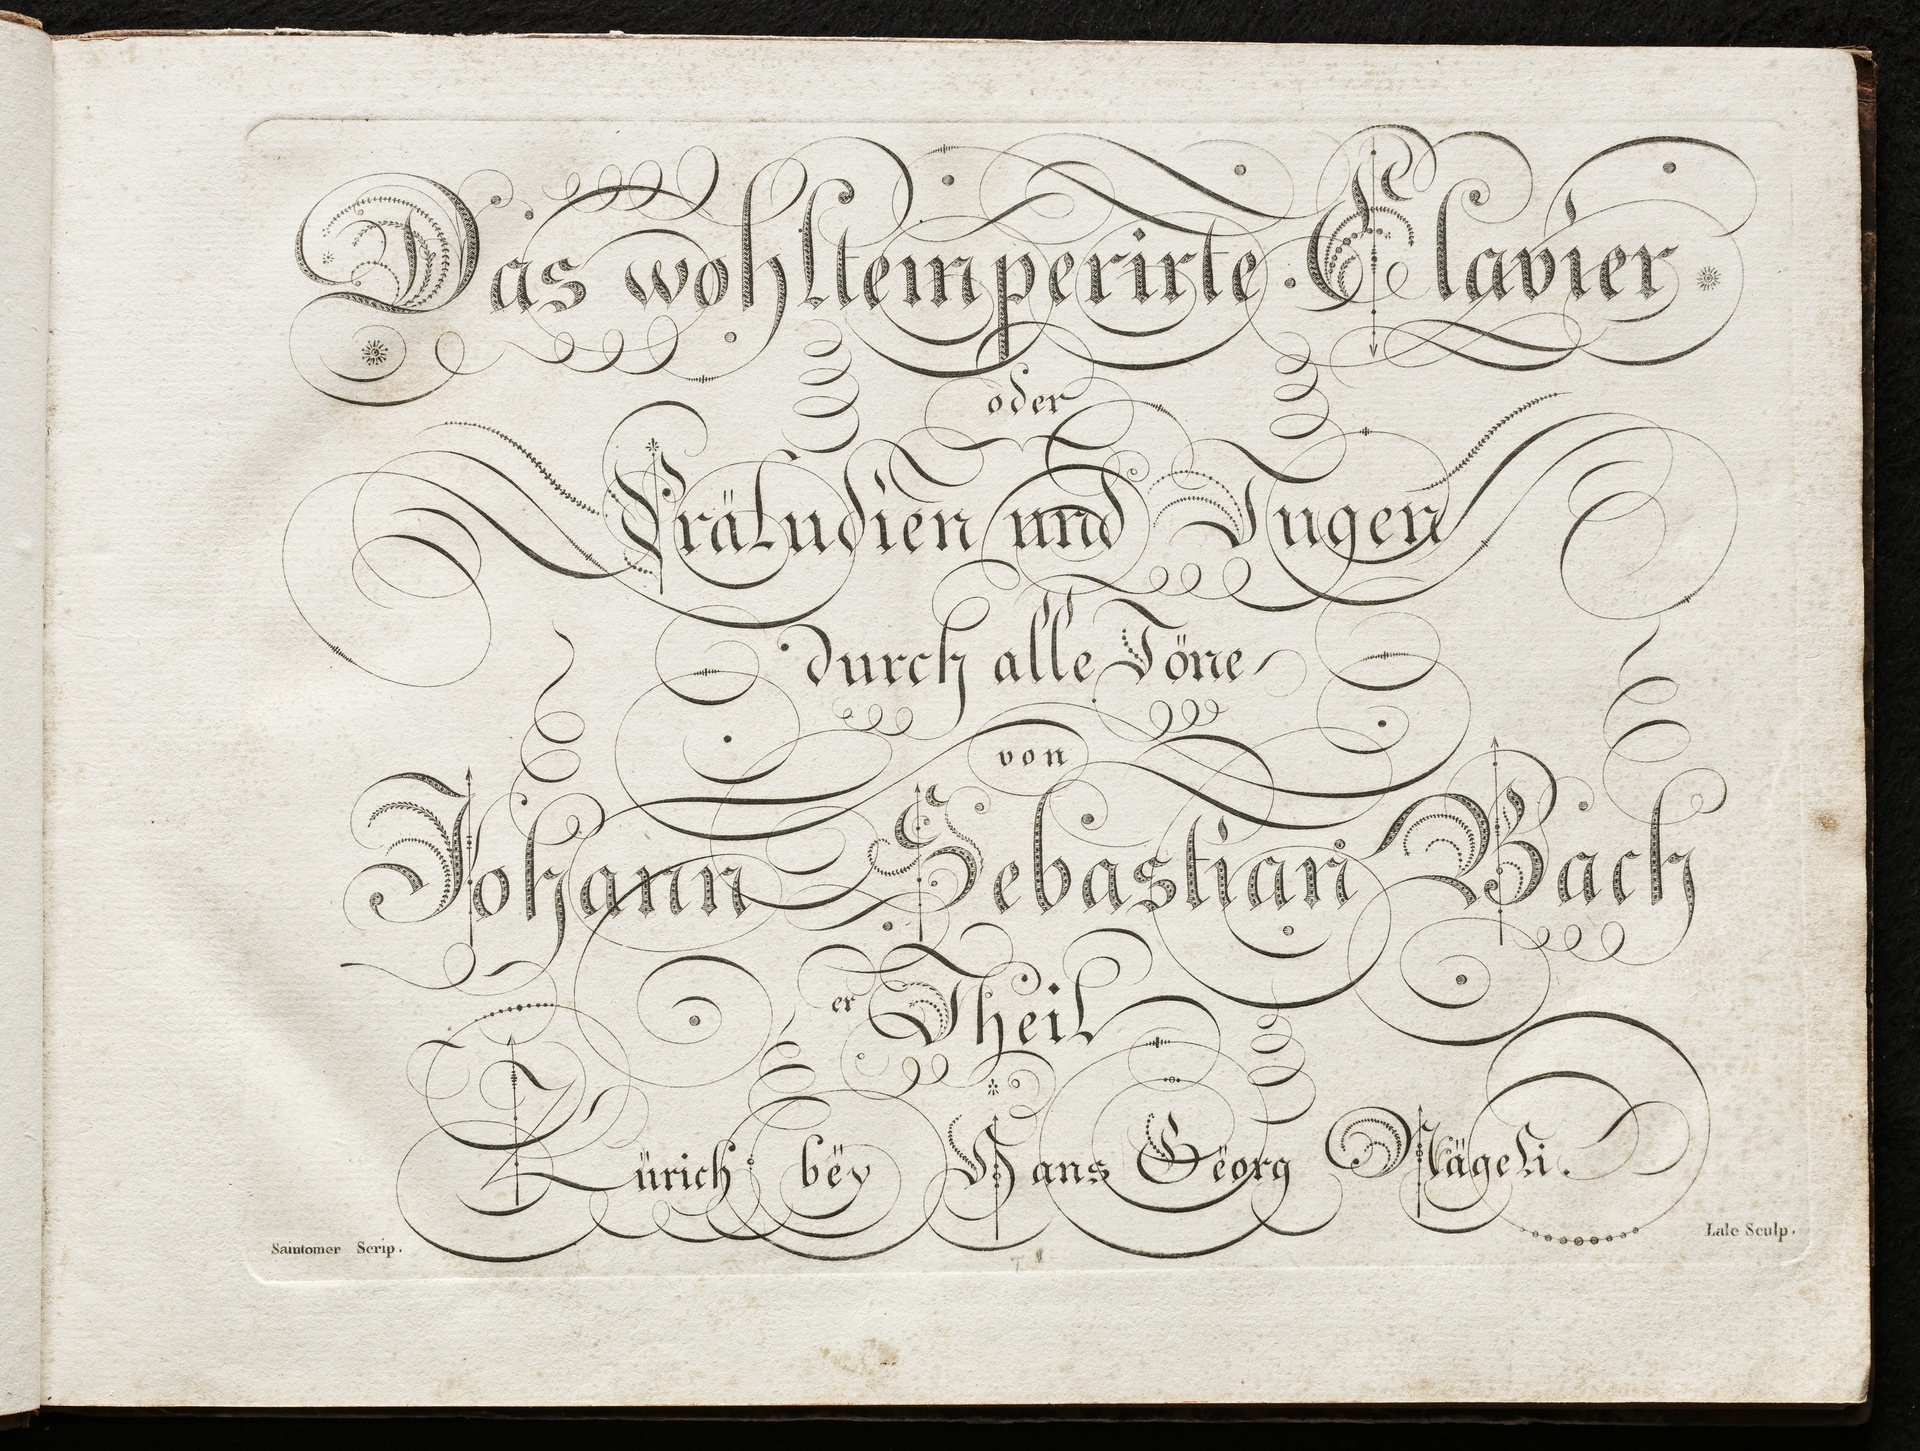 Das wohltemperirte Clavier
oder
Präludien und Fugen
durch alle Töne
von
Johann Sebastian Bach
er Theil
Zürich bëy Hans Gëorg Nägeli.
Saintomer Scrip.
Lale Sculp.